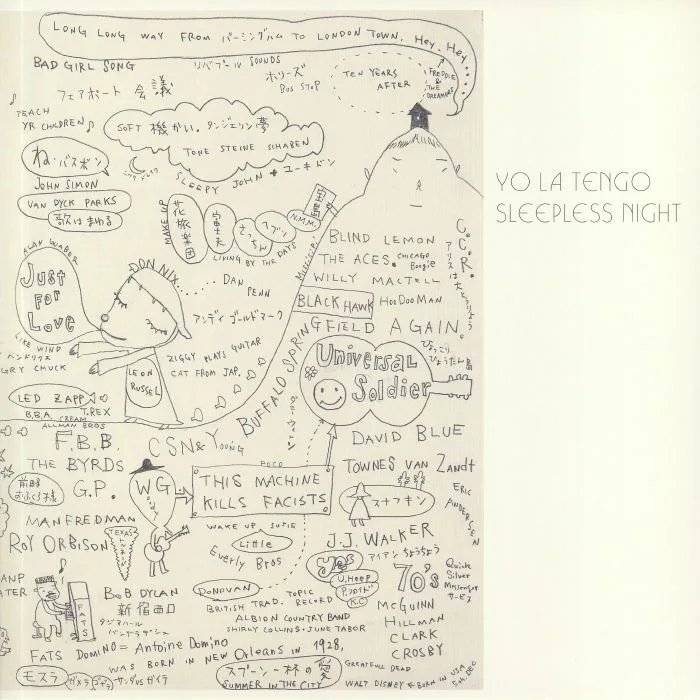 LONG LONG WAY FROM バーミンガム TO LONDON TOWN. Hey, Hey...
BAD GIRL SONG
リバプール SOUNDS
ホリーズ
BUS STOP
TEN YEARS
AFTER
FREDDIE
&
THE
DREAMERS
フェアポート 会議
TEACH
YR CHILDREN
SOFT 機かい。タンジェリン夢
TONE STEINE SCHABEN
ね・バスボン
JOHN SIMON
VAN DYCK PARKS
歌はまわる
SLEEPY JOHN ユーキドン
MAKE UP
花旅楽団
富士夫
さっちん
M.M.M.
LIVING BY THE DAYS
YO LA TENGO
SLEEPLESS NIGHT
ALAN WABER
Just
For
Love
DON NIX......
DAN
PENN
アンディ ゴールドマーク
LIKE WIND
ZIGGY PLAYS GUITAR
CAT FROM JAP.
LEON
RUSSEL
BLIND LEMON
THE ACES.
CHICAGO
Boogie
WILLY MACTELL
BLACK HAWK
HOODOO MAN
C.C.R.
BUFFALO SPRINGFIELD AGAIN.
Universal
Soldier
ひょっこり
ひょうたん島
LED ZAPP
T.REX
B.B.A. CREAM
ALLMAN BROS
F.B.B.
CSN&YOUNG
THE BYRDS
G.P.
WG
POCO
THIS MACHINE
KILLS FACISTS
DAVID BLUE
TOWNES VAN Zandt
スナフキン
ERIC
ANDERSEN
MANFREDMAN
ROY ORBISON
TEXAS
WAKE UP SUFIE
Little
Everly Bros
J.J. WALKER
アイアン ちょうちょう
yes
U.HEEP
P.フロイド
K.C
70's
Quick
Silver
Messenger
サービス
BOB DYLAN
新宿西口
FATS
DONOVAN
TOPIC
BRITISH TRAD. RECORD
ALBION COUNTRY BAND
SHIRLY COLLINS+JUNE TABOR
McGUINN
HILLMAN
CLARK
CROSBY
FATS DOMINO = Antoine Domino
WAS BORN IN NEW Orleans IN 1928,
モスラ
ガメラ
ゴジラ
サンダ対ガイラ
スプーン一杯の愛
SUMMER IN THE CITY
GREATFULL DEAD
WALT DISNEY
BORN IN USA
5th. DEC